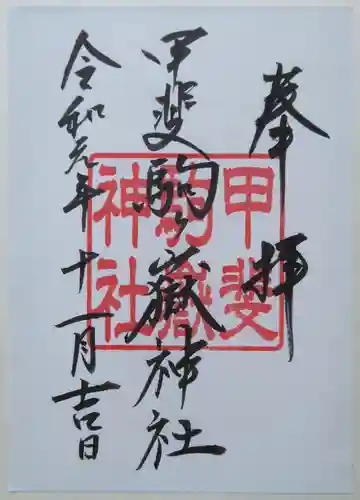 奉拝
甲斐駒ヶ嶽神社
令和元年十一月吉日
甲斐
駒嶽
神社